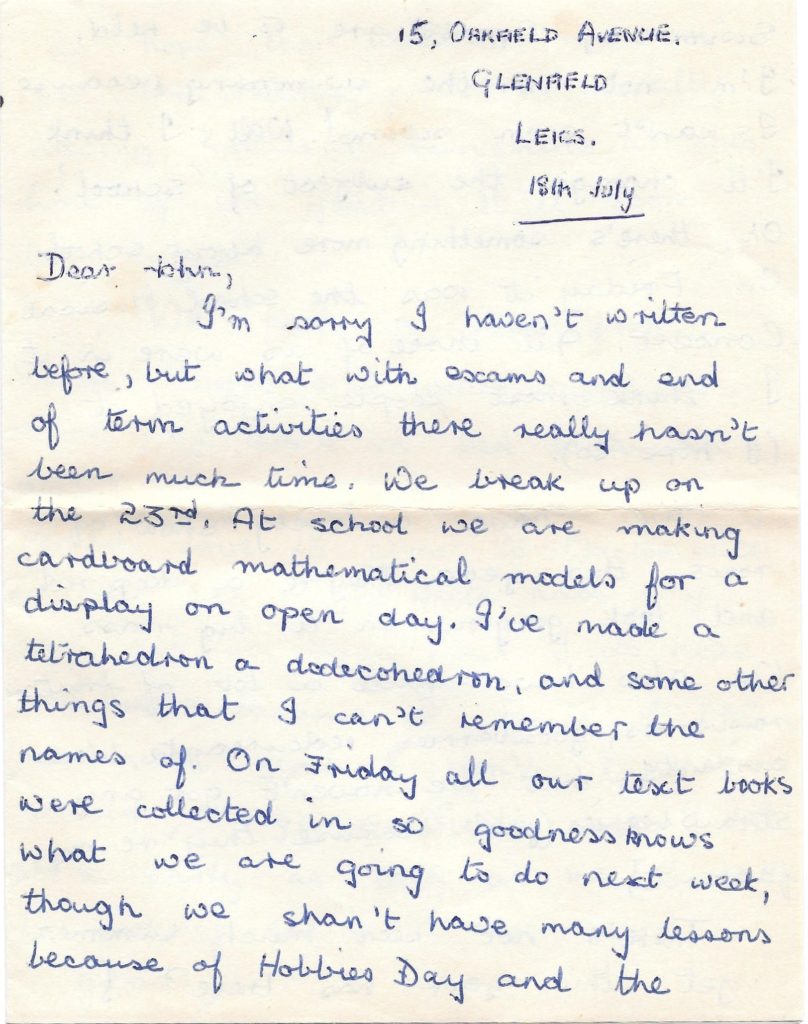 15, OAKFIELD AVENUE.
GLENFIELD
LEICS.
18th July
Dear John,
I'm sorry I haven't written
before, but what with exams and end
of term activities there really hasn't
been much time. We break up on
the 23rd. At school we are making
cardboard mathematical models for a
display on open day. I've made a
tetrahedron a dodecohedron, and some other
things that I can't remember the
names of. On Friday all our text books
were collected in so goodness knows
what we are going to do next week,
though we shan't have many lessons
because of Hobbies Day and the